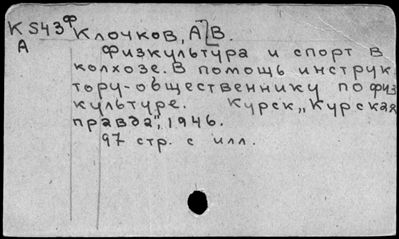 K S43ф Клочков, А[В.
А
физкультура и спорт в
колхозе. В помощь инструк
тору-общественнику по физ
культуре. Курск, „Курская
правда“, 1946.
97 стр. с илл.